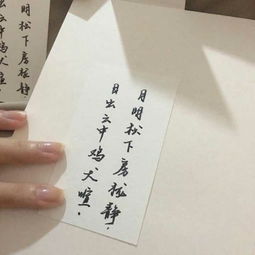 月明松下房栊静，
日出云中鸡犬喧。
月明松下房栊静，
日出云中